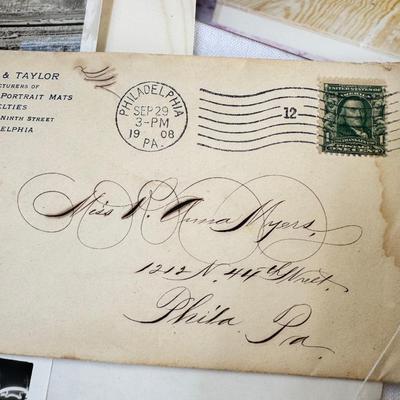 & TAYLOR
CTURERS OF
PORTRAIT MATS
ELTIES
NINTH STREET
ELPHIA
PHILADELPHIA
SEP 29
3-PM
1908
PA.
12
Miss R. Anna Myers,
1212 N. 44th Street.
Phila. Pa.